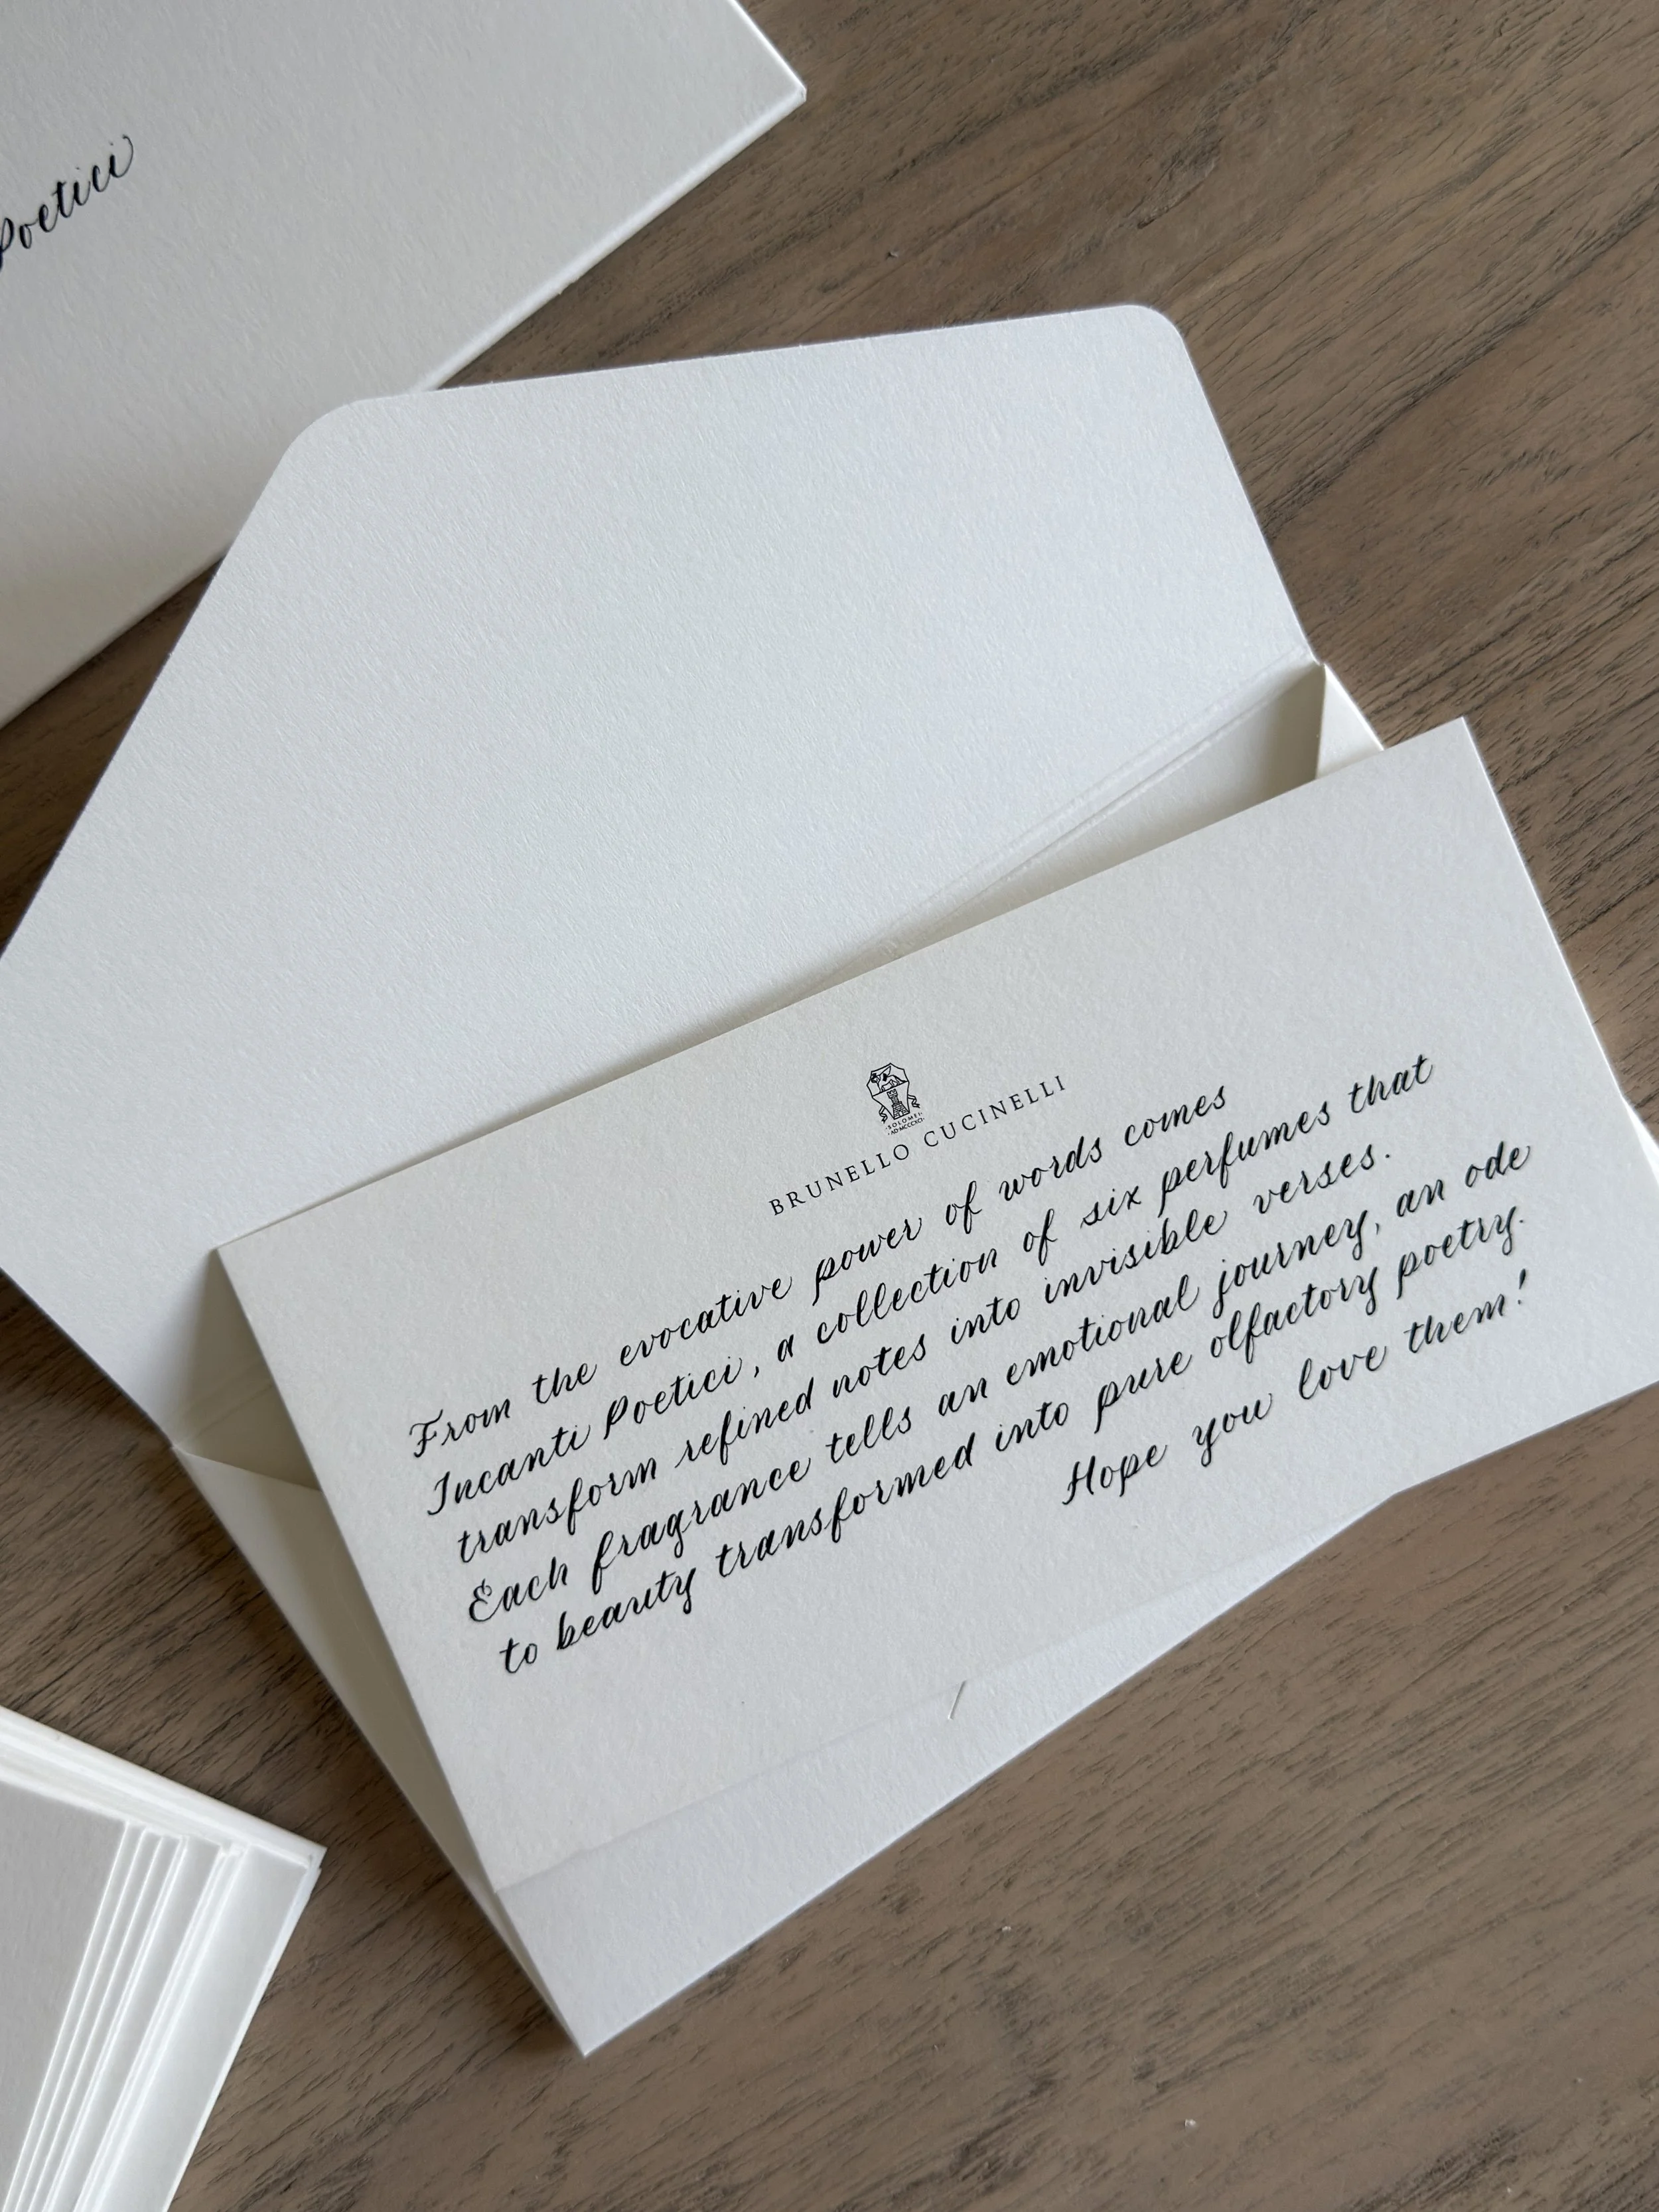 Poetici
SOLOMEI
BRUNELLO CUCINELLI
From the evocative power of words comes
Incanti Poetici, a collection of six perfumes that
transform refined notes into invisible verses.
Each fragrance tells an emotional journey, an ode
to beauty transformed into pure olfactory poetry.
Hope you love them!